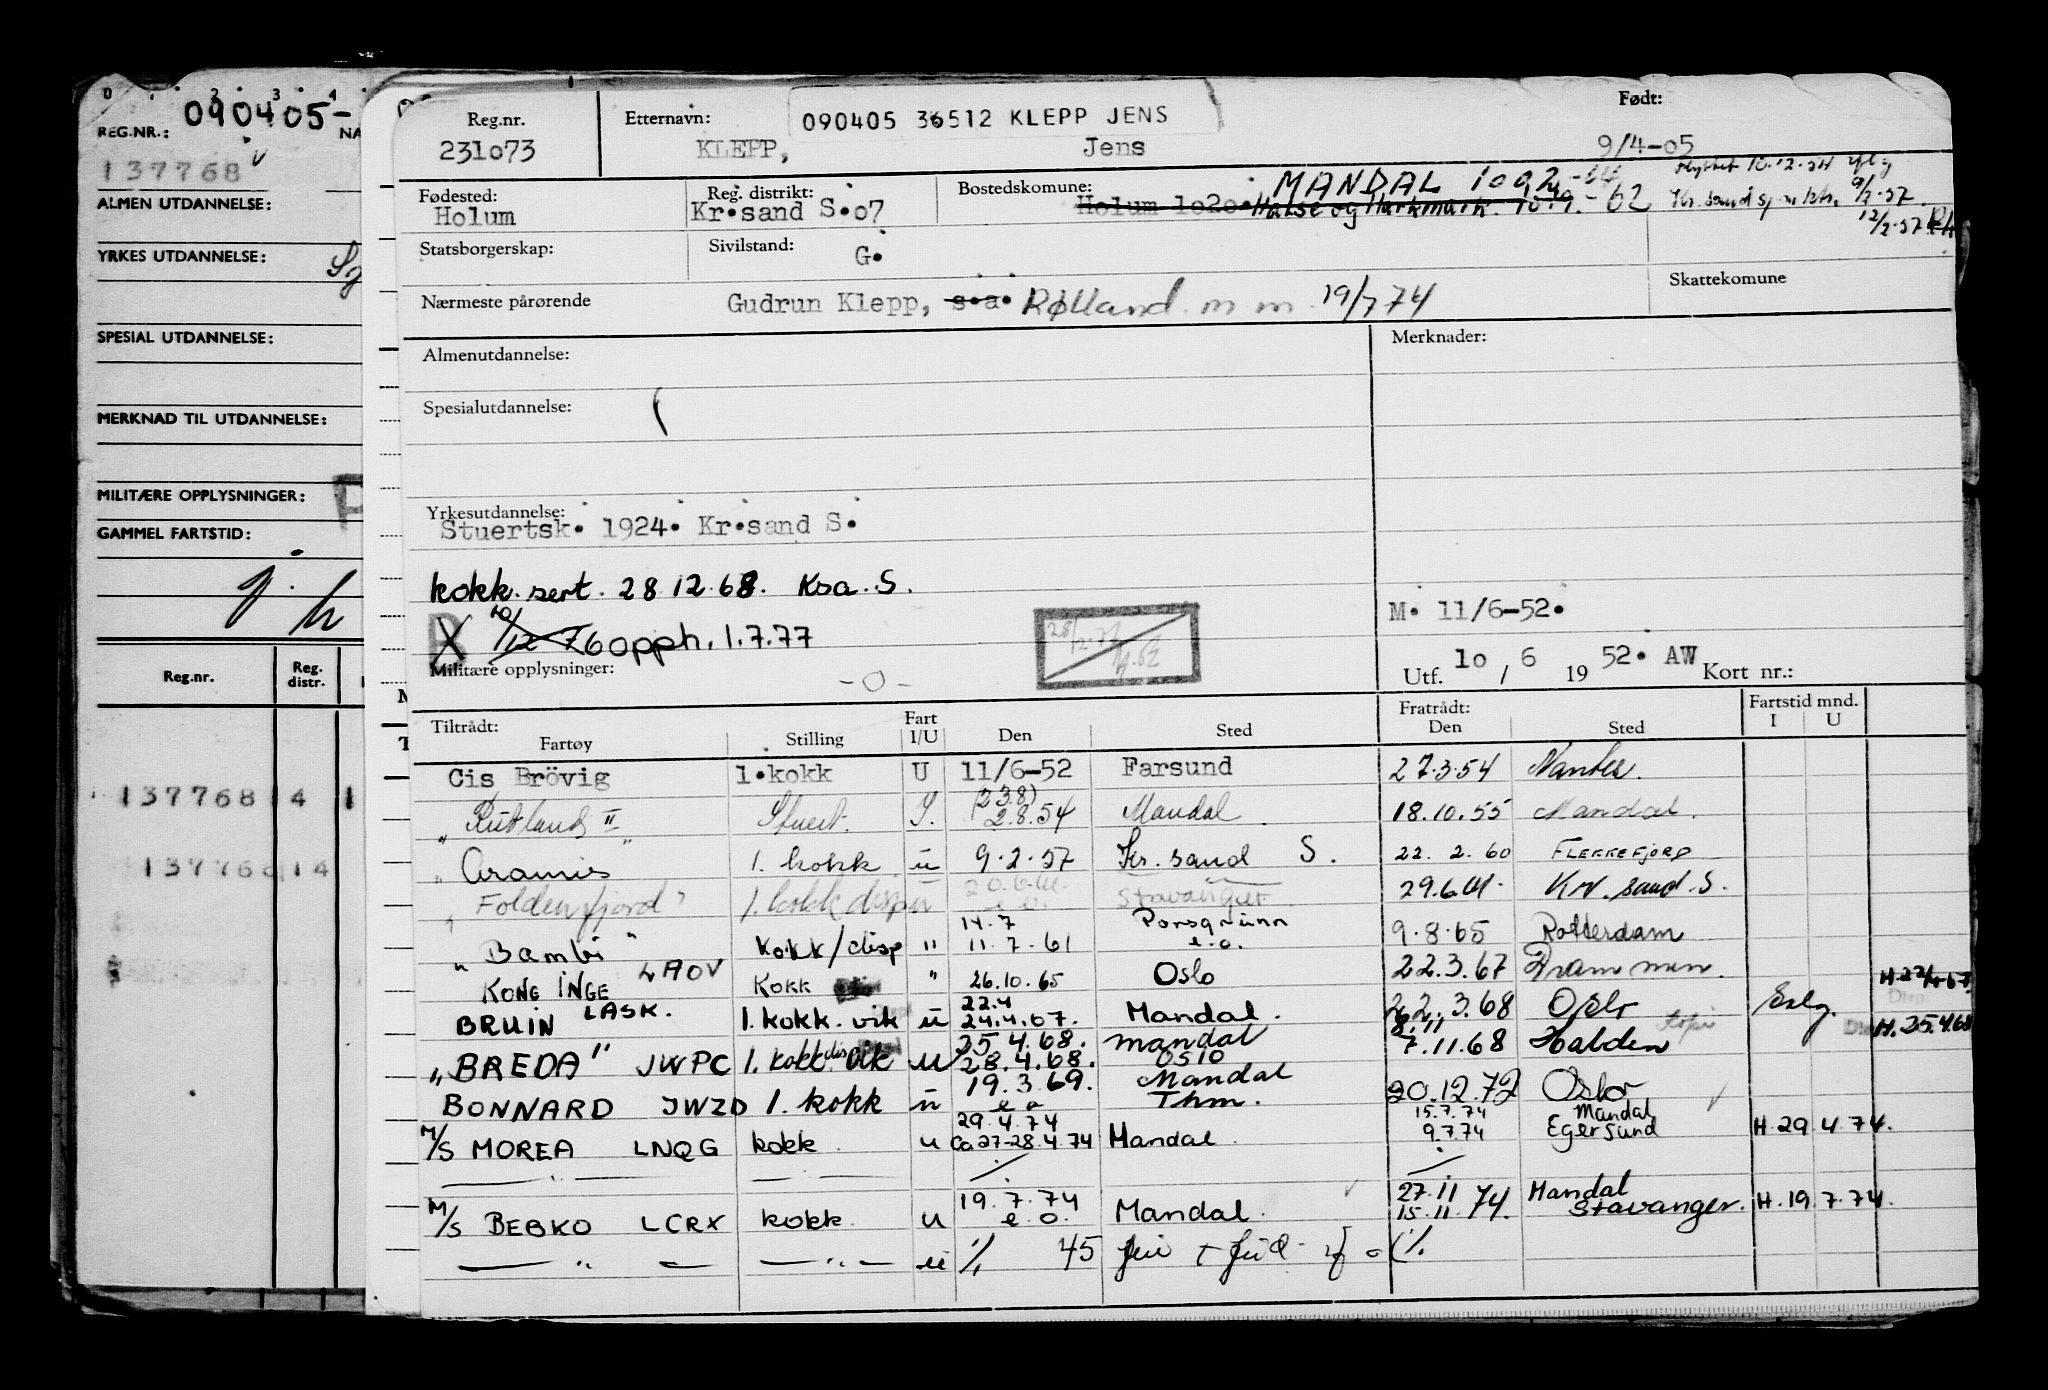 0 1 2 3 4
090405-
REG.NR.: NA
137768
ALMEN UTDANNELSE:
YRKES UTDANNELSE:
SPESIAL UTDANNELSE:
MERKNAD TIL UTDANNELSE:
MILITÆRE OPPLYSNINGER:
GAMMEL FARTSTID:
Reg.nr. Reg. distr.
137768 4 1
137768 14
Reg.nr. Etternavn: 090405 36512 KLEPP JENS Født:
231o73 KLEPP, Jens 9/4-o5
Fødested: Reg. distrikt: Bostedskomune: MANDAL 1002
Holum Kr.sand S.o7 Holum 1o2o. Halse og Harkmark. 10.9.-62
9/2.57
12/2.57
Statsborgerskap: Sivilstand: G.
Nærmeste pårørende Gudrun Klepp, s.a. Rølland m m. 19/7 74 Skattekomune
Almenutdannelse: Merknader:
Spesialutdannelse:
Yrkesutdannelse:
Stuertsk. 1924. Kr.sand S.
kokk. sert. 28.12.68. Ksa. S.
M. 11/6-52.
10/12-76 opph. 1.7.77
Militære opplysninger: -0-
Utf. 1o / 6 19 52. AW Kort nr.:
Tiltrådt: Fart Fratrådt: Fartstid mnd.
Fartøy Stilling I/U Den Sted Den Sted I U
Cis Brövig 1.kokk U 11/6-52 Farsund 27.3.54 Nantes.
"Rutland II" Stuert. I. (23.8) 2.8.54 Mandal 18.10.55 Mandal.
"Aramis" 1. kokk u 9.2.57 Kr. sand S. 22.2.60 FLEKKEFJORD
"Foldenfjord" 1. kokk disp u Stavanger 29.6.61. Kr. sand. S.
"Bambi" kokk/disp " 14.7 11.7.61 Porsgrunn e.o. 9.8.65 Rotterdam
KONG INGE LAOV Kokk " 26.10.65 Oslo 22.3.67 Drammen.
BRUIN LASK. 1. kokk. vik u 22.4 24.4.67. Mandal. 22.3.68 Oslo
H. 25.4.68
"BREDA" JWPC 1. kokk vik u 25.4.68. 28.4.68. Mandal Oslo 8.11 7.11.68 Halden
BONNARD JWZD 1. kokk u 19.3.69. e o Mandal Thm. 20.12.72 Oslo
M/S MOREA LNQG kokk. u 29.4.74 ca 27-28.4.74 Mandal 15.7.74 9.7.74 Mandal Egersund H. 29.4.74.
M/S BEBKO LCRX kokk. u 19.7.74 e.o. Mandal. 27.11 15.11.74. Mandal Stavanger. H. 19.7.74.
— " — — " — u % 45 %